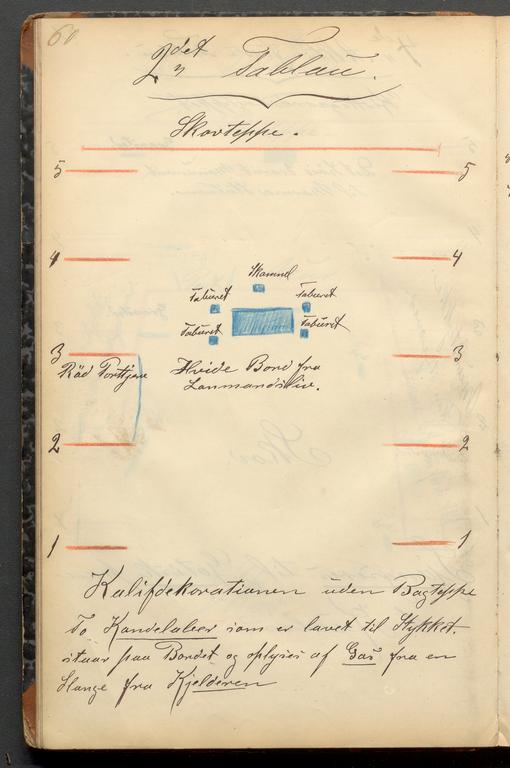 60
2det Tablau.
Skovteppe.
5 5
4 4
Skammel
Taburet Taburet
Taburet Taburet
3 3
Rød Portjere Hvide Bord fra
Lanmandsliv.
2 2
1 1
Kalifdekorationen uden Bagteppe
To Kandelaber som er lavet til Stykket.
staar paa Bordet og oplyses af Gas fra en
Slange fra Kjelderen